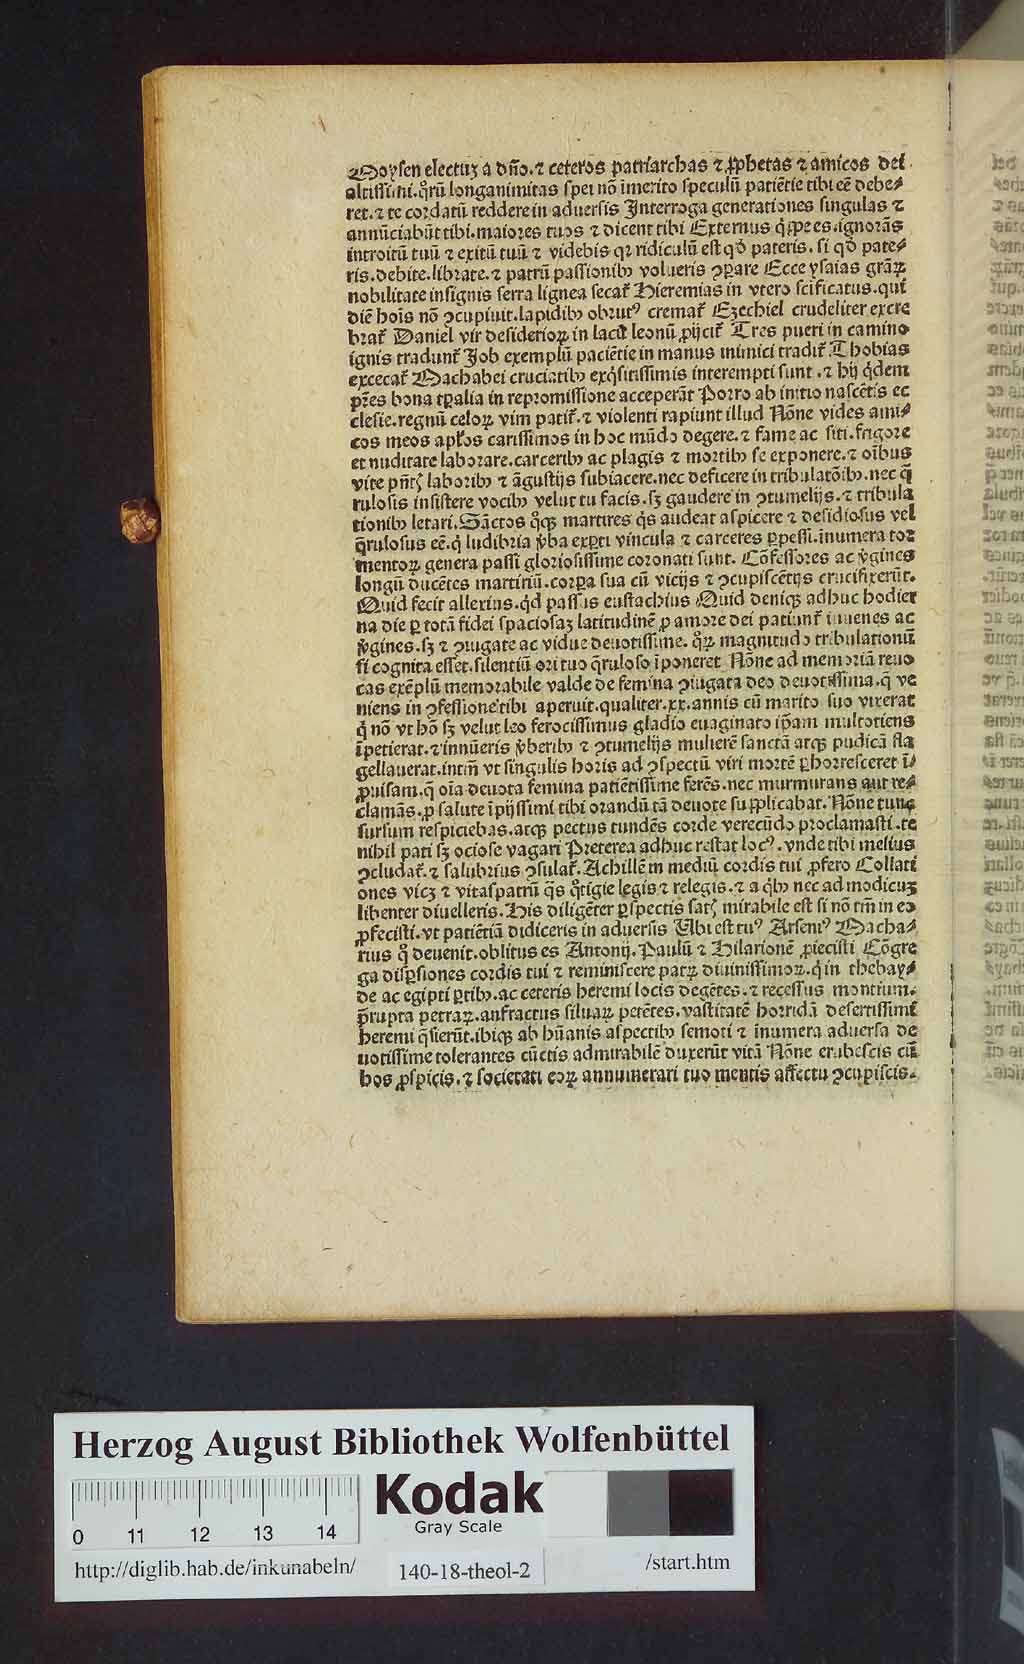 Moysen electuȝ a dño. ⁊ ceteros patriarchas ⁊ ꝓphetas ⁊ amicos dei
altissimi. qͦrū longanimitas spei nō īmerito speculū patiētie tibi eē debe⸗
ret. ⁊ te cordatū reddere in aduersis Interroga generationes singulas ⁊
annūciabūt tibi. maiores tuos ⁊ dicent tibi Externus es. ignorās
introitū tuū ⁊ exitū tuū ⁊ videbis qꝛ ridiculū est qd̄ pateris. si qd̄ pate⸗
ris. debite. librate. ⁊ patrū passionibꝰ volueris ꝯꝑare Ecce ysaias grāꝝ
nobilitate insignis serra lignea secat᷑ Hieremias in vtero scificatus. qui
diē hois nō ꝯcupiuit. lapidibꝰ obrutꝰ cremat᷑ Ezechiel crudeliter excre
brat᷑ Daniel vir desiderioꝝ in lacū leonū ꝓijcit᷑ Tres pueri in camino
ignis tradunt᷑ Job exemplū paciētie in manus inimici tradit᷑ Thobias
excecat᷑ Machabei cruciatibꝰ exqͥsitissimis interempti sunt. ⁊ hij qͥdem
pr̄es bona tꝑalia in repromissione acceperāt Porro ab initio nascētis ec
clesie. regnū celoꝝ vim patit᷑. ⁊ violenti rapiunt illud Nōne vides ami⸗
cos meos apl̄os carissimos in hoc mūdo degere. ⁊ fame ac siti. frigore
et nuditate laborare. carceribꝰ ac plagis ⁊ mortibꝰ se exponere. ⁊ oībus
vite pn̄tꝭ laboribꝰ ⁊ āgustijs subiacere. nec deficere in tribulatōibꝰ. nec q̄
rulosis insistere vocibꝰ velut tu facis. sȝ gaudere in ꝯtumelijs. ⁊ tribula
tionibꝰ letari. Sāctos qͦqꝫ martires qͥs audeat aspicere ⁊ desidiosus vel
q̄rulosus eē. qͥ ludibria v̄ba exꝑti vincula ⁊ carceres ꝑpessi. inumera tor
mentoꝝ genera passi gloriosissime coronati sunt. Cōfessores ac v̄gines
longū ducētes martiriū. corꝑa sua cū vicijs ⁊ ꝯcupiscētijs crucifixerūt.
Quid fecit allexius. qͥd passus eustachius Quid deniqꝫ adhuc hodier
na die ꝑ totā fidei spaciosaȝ latitudinē ꝓ amore dei patiunt᷑ iuuenes ac
v̄gines. sȝ ⁊ ꝯiugate ac vidue deuotissime. qͣꝝ magnitudo tribulationū
si cognita esset. silentiū ori tuo q̄ruloso īponeret Nōne ad memoriā reuo
cas exēplū memorabile valde de femina ꝯiugata deo deuotissima. q̄ ve
niens in ꝯfessione tibi aperuit. qualiter. xx. annis cū marito suo vixerat
qͥ nō vt hō sȝ velut leo ferocissimus gladio euaginato ip̄am multotiens
īpetierat. ⁊ innūeris v̄beribꝰ ⁊ ꝯtumelijs mulierē sanctā atqꝫ pudicā fla
gellauerat. intm̄ vt singulis horis ad ꝯspectū viri mortē ꝑhorresceret ī⸗
ꝓuisam. q̄ oīa deuota femina patiētissime ferēs. nec murmurans aut re⸗
clamās. ꝓ salute īpijssimi tibi orandū tā deuote supplicabat. Nōne tunc
sursum respiciebas. atqꝫ pectus tundēs corde verecūdo proclamasti. te
nihil pati sȝ ociose vagari Preterea adhuc restat locꝰ. vnde tibi melius
ꝯcludat᷑. ⁊ salubrius ꝯsulat᷑. Achillē in mediū cordis tui ꝓfero Collati
ones vicȝ ⁊ vitaspatrū qͣs legis ⁊ relegis. ⁊ a qͥbꝰ nec ad modicuȝ
libenter diuelleris. His diligēter ꝑspectis satꝭ mirabile est si nō tm̄ in eo
ꝓfecisti. vt patiētiā didiceris in aduersis Ubi est tuꝰ Arseniꝰ Macha⸗
rius qͦ deuenit. oblitus es Antonij. Paulū ⁊ Hilarionē ꝓiecisti Cōgre
ga disꝑsiones cordis tui ⁊ reminiscere patꝝ diuinissimoꝝ. qͥ in thebay⸗
de ac egipti ꝑtibꝰ. ac ceteris heremi locis degētes. ⁊ recessus montium.
p̄rupta petraꝝ. anfractus siluaꝝ petētes. vastitatē horridā desertissimi
heremi q̄sierūt. ibiqꝫ ab hūanis aspectibꝰ semoti ⁊ inumera aduersa de
uotissime tolerantes cūctis admirabilē duxerūt vitā Nōne erubescis cū
hos ꝓspicis. ⁊ societati eoꝝ annumerari tuo mentis affectu ꝯcupiscis.
Herzog August Bibliothek Wolfenbüttel
Kodak
Gray Scale
0 11 12 13 14
http://diglib.hab.de/inkunabeln/ 140-18-theol-2 /start.htm